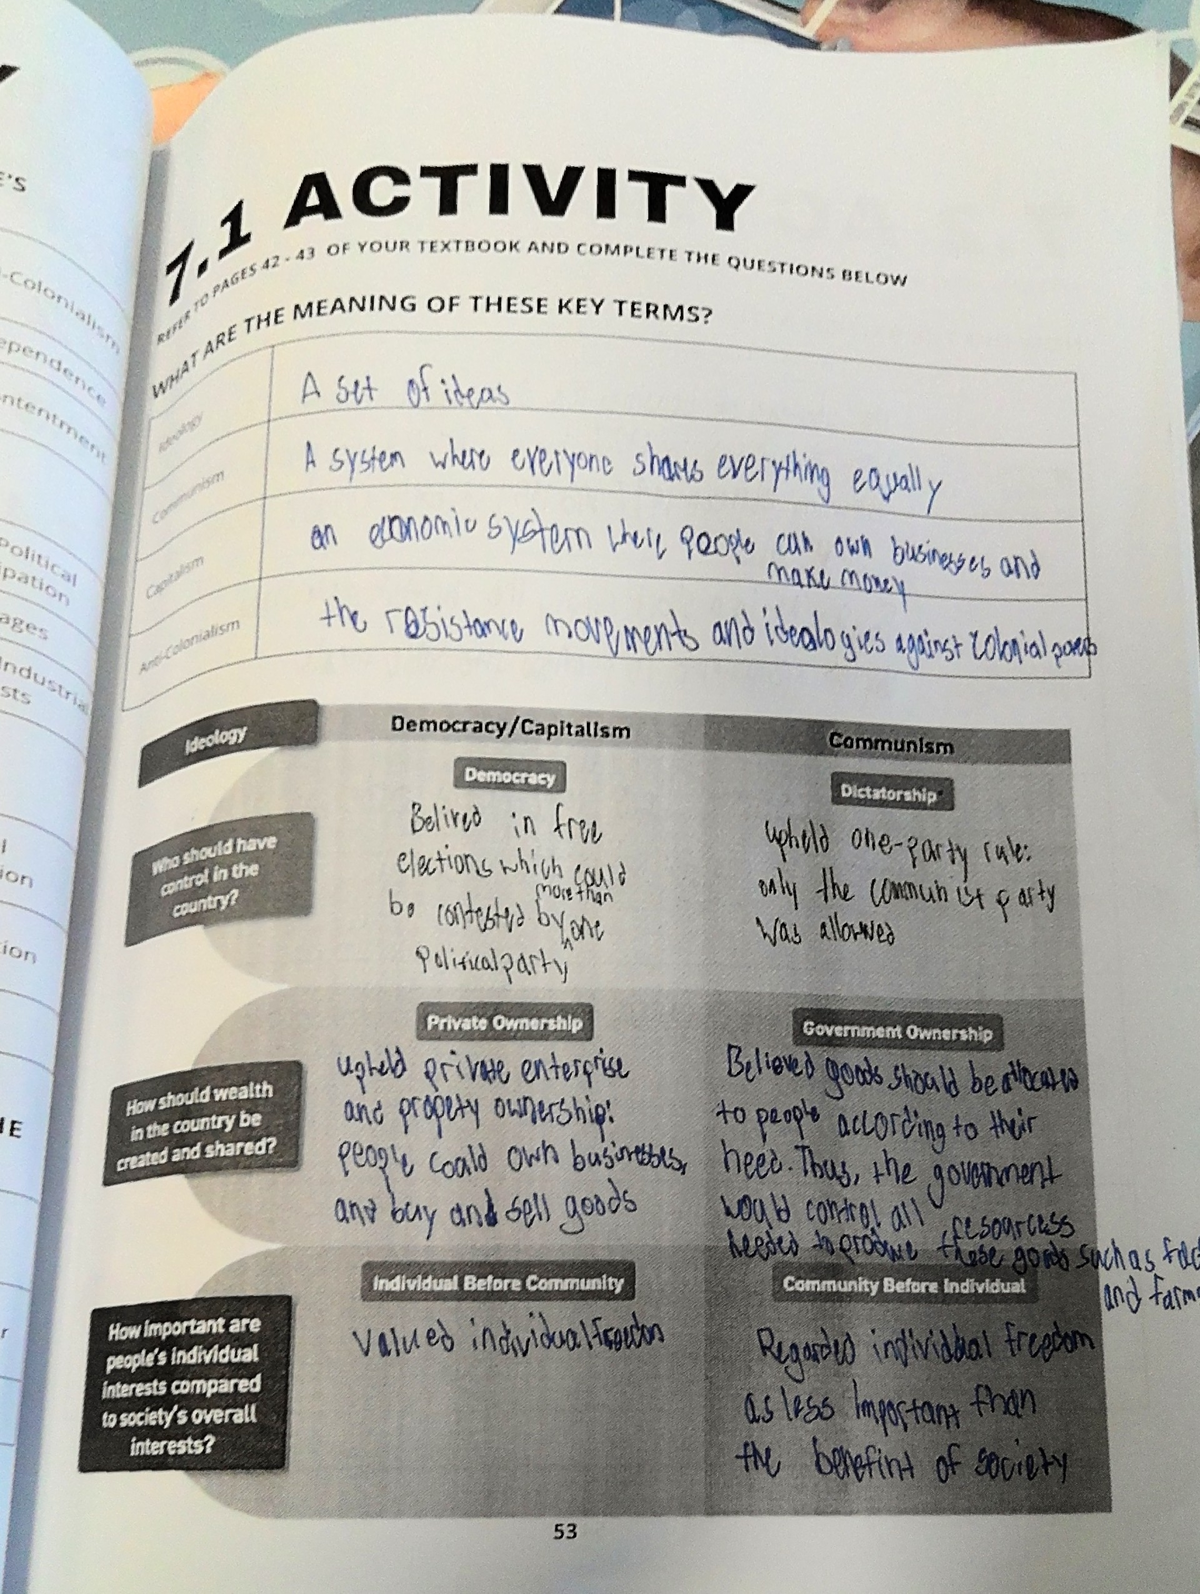 7.1 ACTIVITY
REFER TO PAGES 42 - 43 OF YOUR TEXTBOOK AND COMPLETE THE QUESTIONS BELOW
WHAT ARE THE MEANING OF THESE KEY TERMS?
Ideology
A set of ideas
Communism
A system where everyone shares everything equally
Capitalism
an economic system where people can own businesses and
make money
Anti-Colonialism
the resistance movements and idealogies against colonial powers
Ideology
Democracy/Capitalism
Communism
Who should have
control in the
country?
Democracy
Belived in free
elections which could
be contested by more than one
Political party
Dictatorship
upheld one-party rule:
only the communist party
was allowed
How should wealth
in the country be
created and shared?
Private Ownership
upheld private enterprise
and propety ownership:
people could own businesses,
and buy and sell goods
Government Ownership
Believed goods should be allocated
to people according to their
need. Thus, the government
would control all resourcess
needed to produce these goods such as
and farm
How important are
people's individual
interests compared
to society's overall
interests?
Individual Before Community
Valued individual freedom
Community Before Individual
Regarded individual freedom
as less important than
the benefint of society
53
E'S
-Colonialism
ependence
ntentment
Political
ipation
ages
Industrial
sts
ion
ion
HE